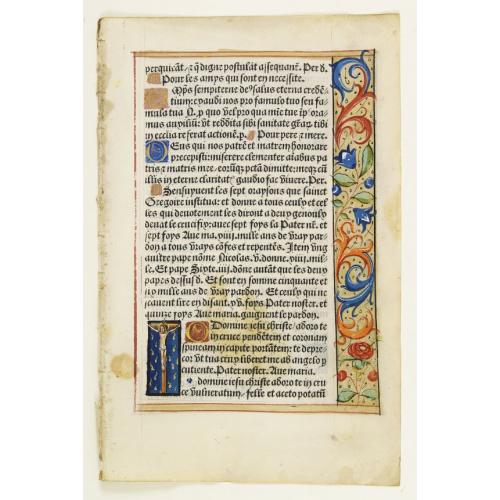 perquirāt, ⁊ q̄ digne postulāt assequant̄. Per d.
Pour les amys qui sont en necessite.
Mp̄s sempiterne de⁹ salus eterna credē
tium: exaudi nos pro famulo tuo seu fa
mula tua N. p quo vel pro qua mie tue īplora
mus auxiliū: vt reddita sibi sanitate grāȝ tibi
in ecclia referat actionē. p. Pour pere ⁊ mere.
Eus qui nos patrē et matrem honorare
precepisti: miserere clementer aīabus patris
⁊ matris mee eorūq̄ pctā dimitte: meqȝ cū
illis in eterne claritat⁹ gaudio fac vivere. Per.
Sensuyuent les sept oraysons que sainct
Gregoire institua: et donne a tous ceulx et cel
les qui devotement les diront a deux genoulx
devāt le crucifix: avec sept foys la Pater nr̄. et
sept foys Ave ma. xiiii. mille ans de vray par
don a tous vrays cōfes et repentēs. Item vng
aultre pape nōme Nicolas. v. donne. xiiii. mil
le. Et pape Sixte. iiii. dōne autāt que les deux
papes dessus d. Et sont en somme cinquante et
vj mille ans de vray pardon. Et ceulx qui ne
sçauent lire en disant. xv. foys Pater noster. et
quinze foys Ave maria. gaignent le pardon.
Domine iesu christe adoro te
in cruce pendētem et coronam
spineam in capite portātem: te depre
cor vt tua crux liberet me ab angelo p
cutiente. Pater noster. Ave maria.
domine iesu christe adoro te in cru
ce vulneratum, felle et aceto potatū